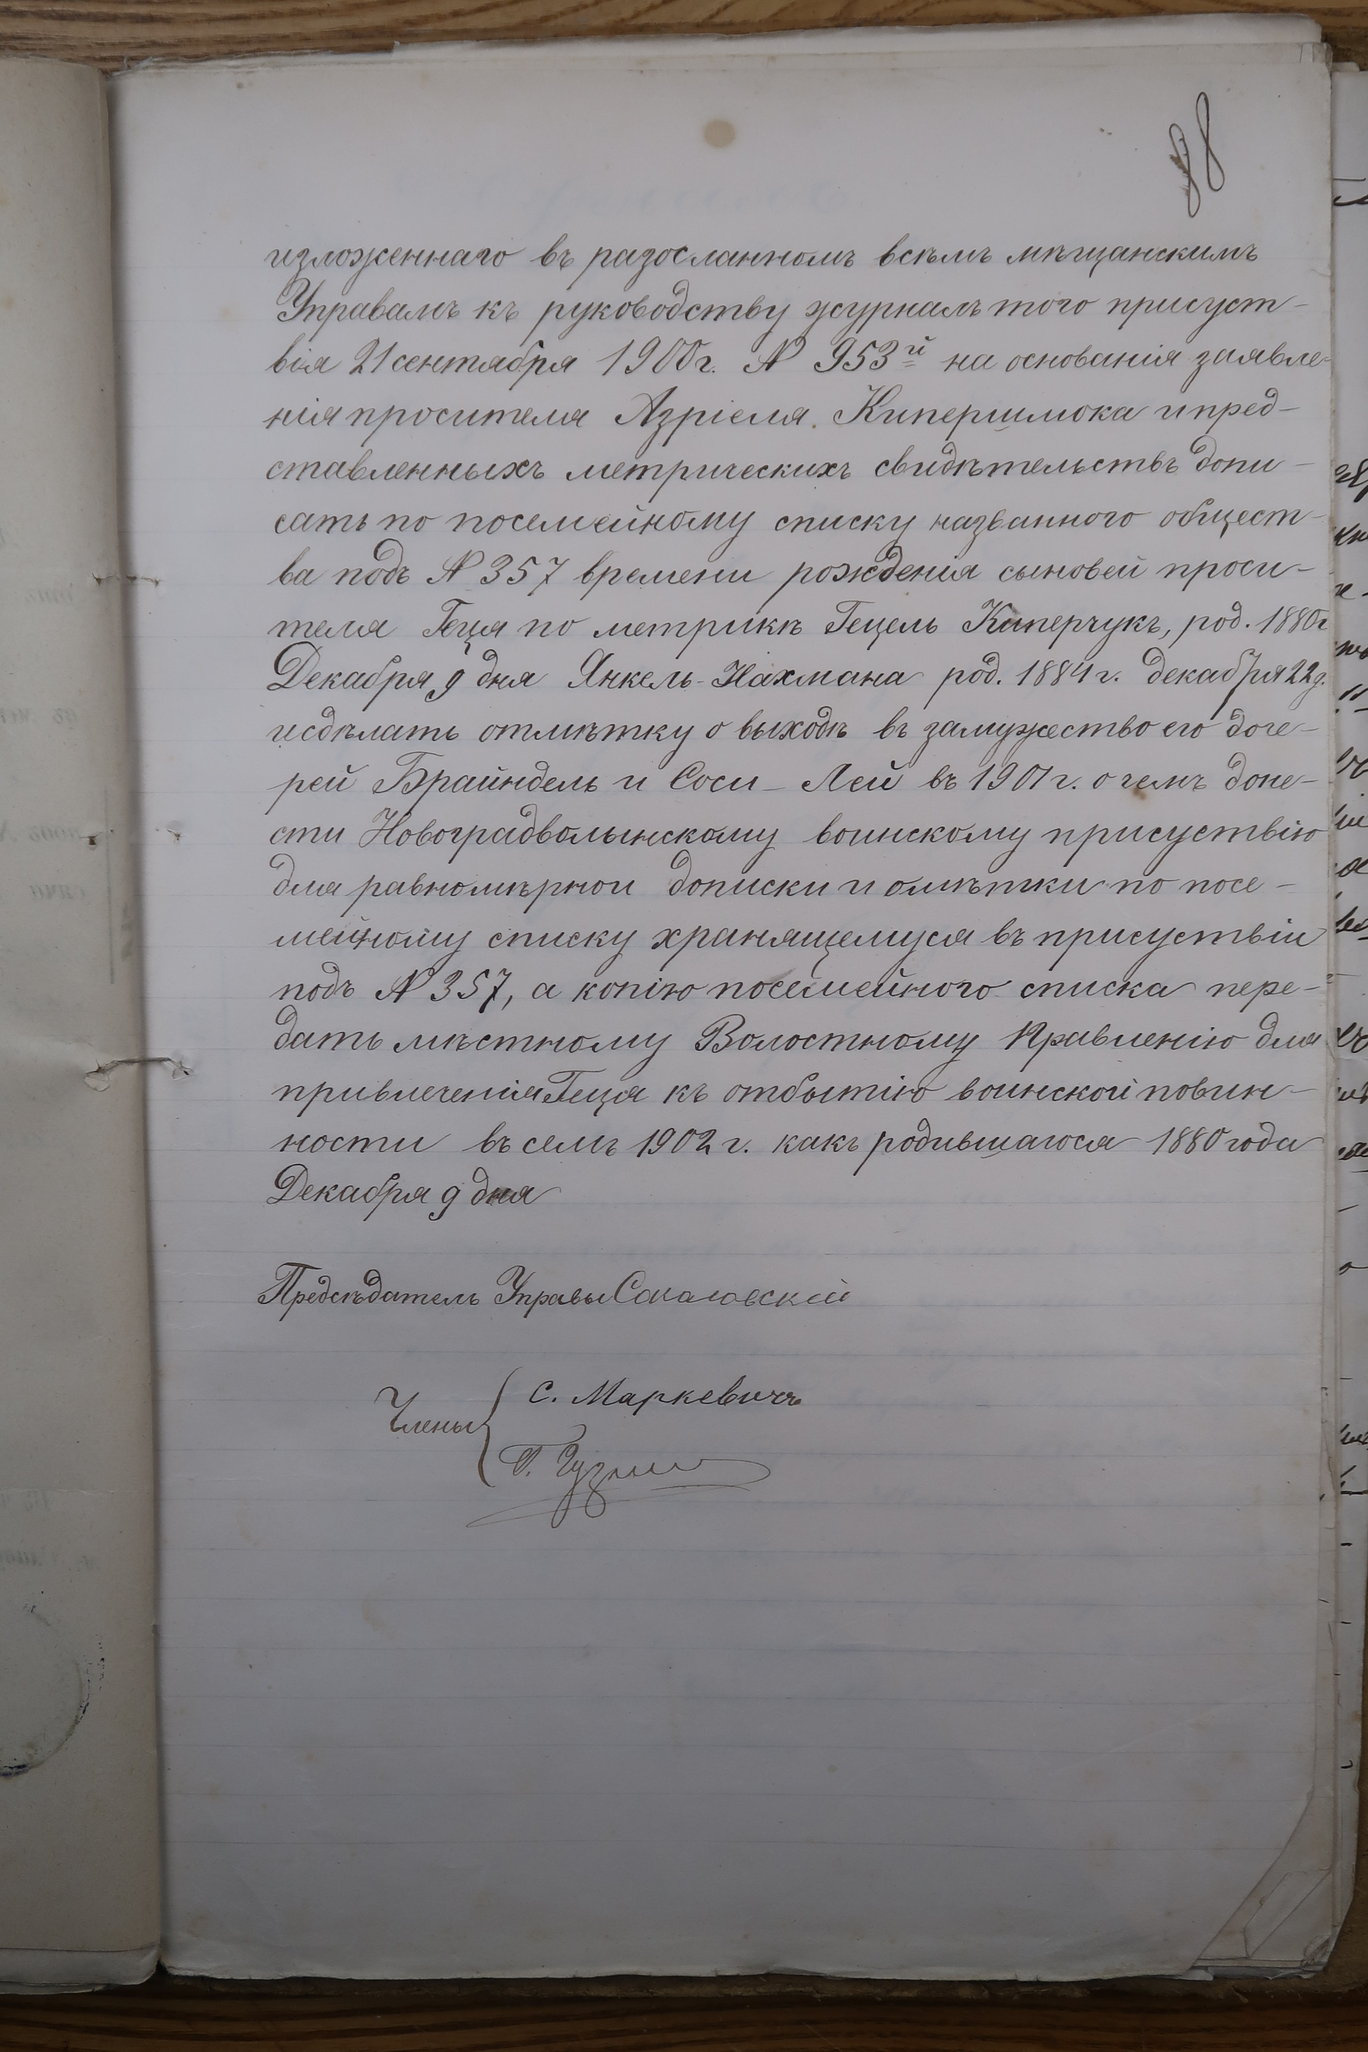 88
изложеннаго въ разосланномъ всѣмъ мѣщанскимъ
Управамъ къ руководству журналѣ того присуст-
вія 21 сентября 1900г. № 953й на основанія заявле-
нія просителя Азріеля Кипершмока и пред-
ставленныхъ метрическихъ свидѣтельствъ допи-
сать по посемейному списку названного общест-
ва подъ № 357 времени рожденія сыновей проси-
теля Геця по метрикѣ Гецель Киперчукъ, род. 1880г
Декабря 9 дня Янкель-Нахмана род. 1884г. декабря 22д.
и сдѣлать отмѣтку о выходѣ въ замужество его доче-
рей Брайндель и Соси-Леи въ 1901г. о чемъ доне-
сти Новоградволынскому воинскому присуствію
для равномѣрной дописки и омѣтки по посе-
мейному списку хранящемуся въ присуствіи
подъ № 357, а копію посемейного списка пере-
дать мѣстному Волостному Правленію для
привлеченія Геця къ отбытію воинской повин-
ности въ семъ 1902г. какъ родившагося 1880 года
Декабря 9 дня
Предсѣдатель Управы
Члены { С. Маркевичъ